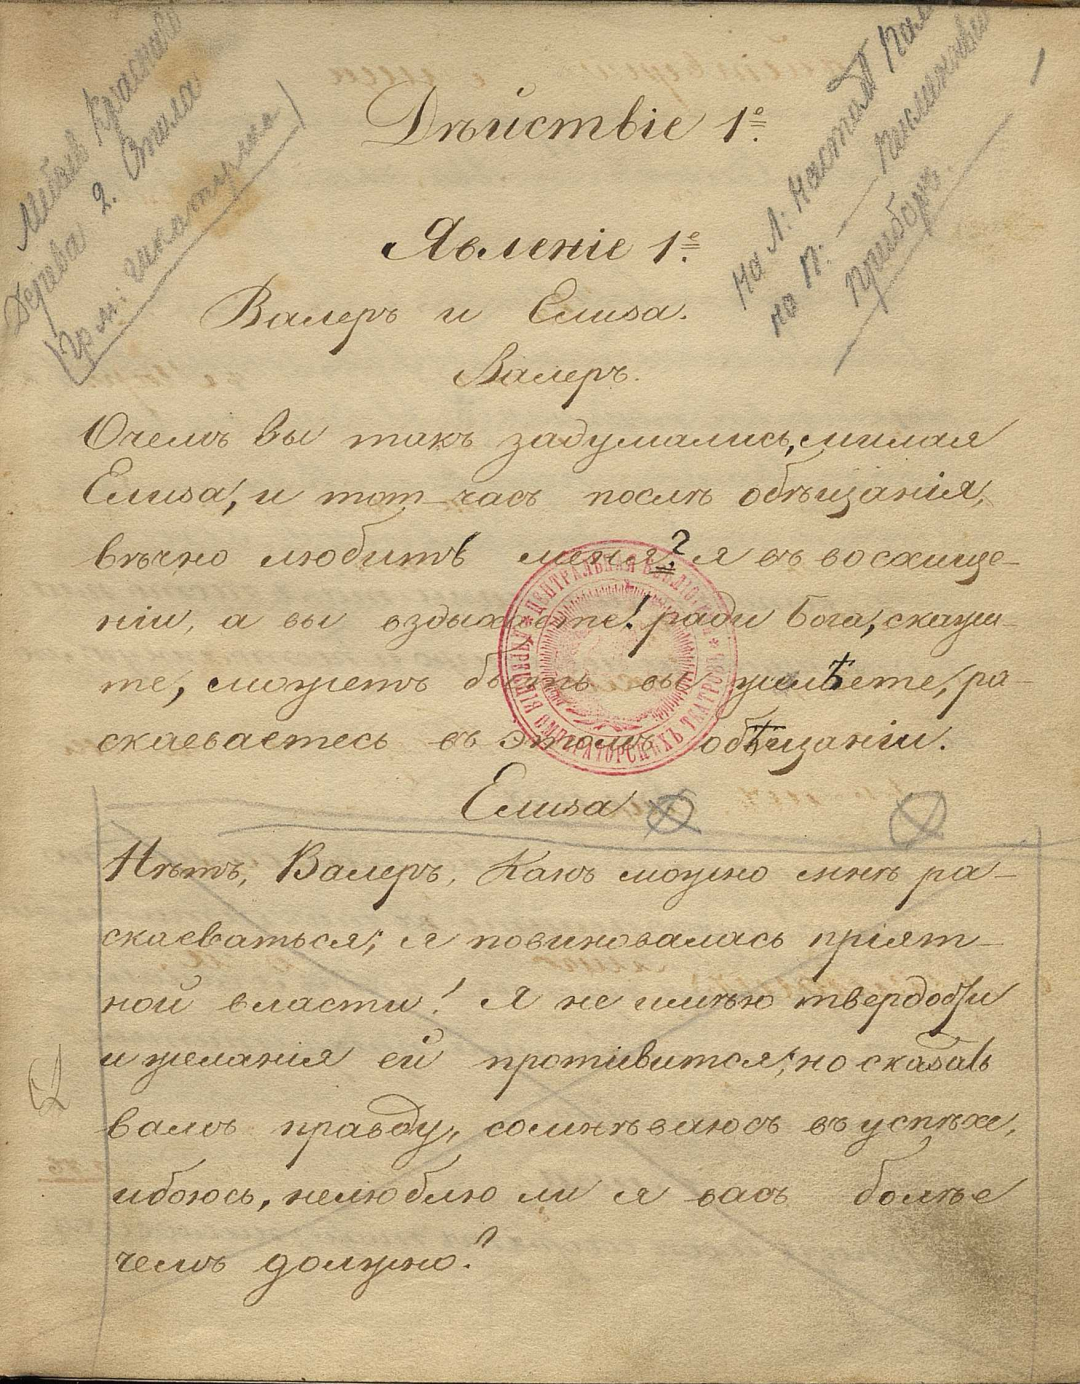 Мебель Краснаго
Дерева 2. Стола
(Гр. м: шкатулка)
на Л: настол
на П: — писменный
приборъ.
Дѣйствіе 1е.
Явленіе 1е.
Валеръ и Елиза.
Валеръ.
Очемъ вы такъ задумались, милая
Елиза, и тот часъ послѣ обѣщанія,
вѣчно любить меня? я въ восхище-
ніи, а вы вздыхаете! ради Бога, скажи-
те, можетъ быть вы жалѣете, ра-
скаеваетесь въ этомъ обѣщаніи.
ЦЕНТРАЛЬНАЯ БИБЛІОТЕКА ИМПЕРАТОРСКИХЪ ТЕАТРОВЪ
Елиза
Нѣтъ, Валеръ, Какъ можно мнѣ ра-
скаеваться; я повиновалась пріят-
ной власти! Я не имѣю твердости
и желанія ей противится; но сказать
вамъ правду, сомнѣваюсь въ успѣхе,
ибоюсь, нелюблю ли я васъ болѣе
чемъ должно?